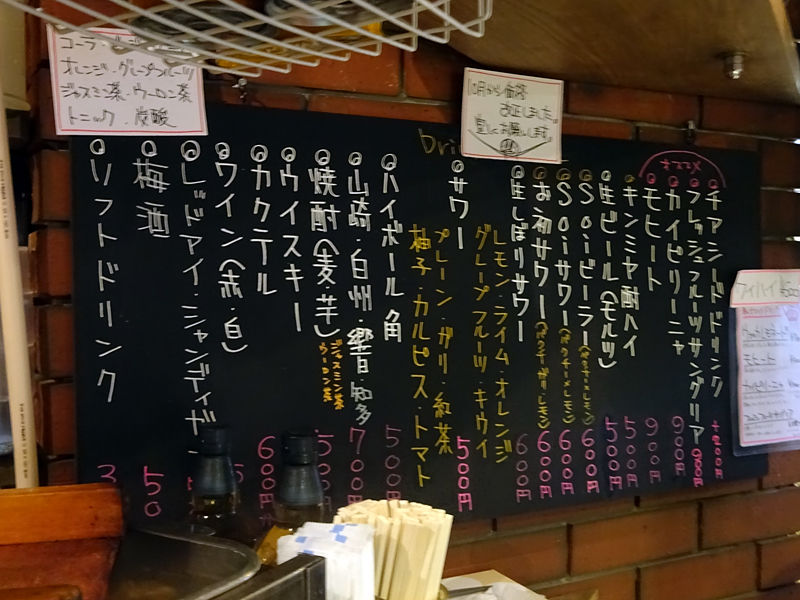 コーラ・
オレンジ・グレープフルーツ
ジャスミン茶・ウーロン茶
トニック・炭酸
10月から価格
改正しました。
宜しくお願いします。
オススメ
チアシードドリンク +200円
フレッシュフルーツサングリア 900円
カイピリーニャ 900円
モヒート 900円
キンミヤ酎ハイ 500円
生ビール(モルツ) 500円
Soiビーラー(パクチー×レモン) 600円
Soiサワー(パクチー×レモン) 600円
お初サワー(パクチーガリレモン) 600円
生しぼりサワー 600円
レモン・ライム・オレンジ
グレープフルーツ・キウイ
サワー 500円
プレーン・ガリ・紅茶
柚子・カルピス・トマト
ハイボール角 500円
山崎・白州・響・知多 700円
ウイスキー 500円
ジャスミン茶
ウーロン茶
焼酎(麦・芋)
カクテル 600円
ワイン(赤・白)
レッドアイ・シャンディガ
梅酒 50
ソフトドリンク 3